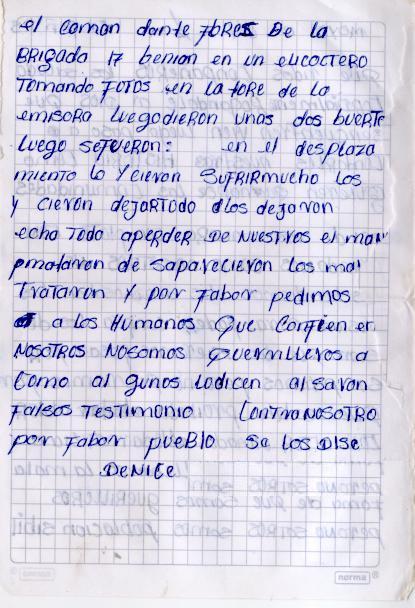 el coman dante 7bRes De la
BRigada 17 benion en un elicoctero
Tomando FOTOS en la tore de la
emisora luego dieron unas dos buerte
luego se fueron: en el desplaza
miento lo Ycieron SUFRIR mucho los
y cieron dejar Todo dlos dejaron
echa Todo aperder De nuestros el man
pmataron de saparecieron los mal
Trataron y por fabor pedimos
a los Humanos Que confien en
NOSOTROS NOSOMOS guerrilleros a
como al gunos lodicen alsaron
Falsos Testimonio Contra NOSOTRO
por fabor pueBlo se los Dise
DeNICe
norma